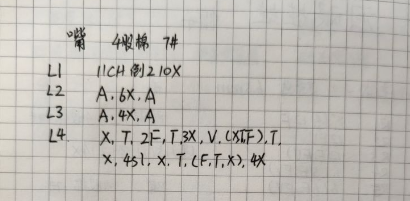 嘴 4股棉 7#
L1 11CH 倒2 10X
L2 A, 6X, A
L3 A, 4X, A
L4 X, T, 2F, T, 3X, V, (X,T,F), T,
X, 4sl, X, T, (F,T,X), 4X